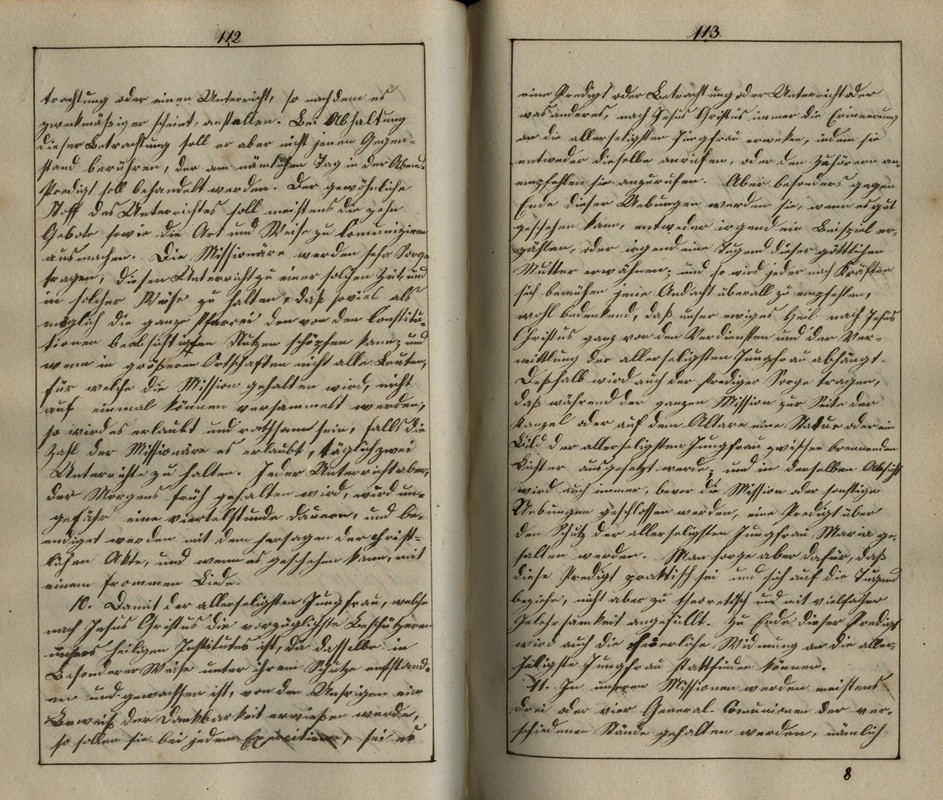 112
trachtung oder einen Unterricht, so nachdem es
zweckmäßiger scheint, anstellen. Bei Abhaltung
dieser Betrachtung soll er aber nicht jenen Gegen-
stand berühren, der am nämlichen Tag in der Abend-
Predigt soll behandelt werden. Der gewöhnliche
Stoff des Unterrichtes soll meistens die zehn
Gebote sowie die Art und Weise zu kommuniziren
ausmachen. Die Missionäre werden sehr Sorge
tragen, diesen Unterricht zu einer solchen Zeit und
in solcher Weise zu halten, daß soviel als
möglich die ganze Pfarrei den von den Constitu-
tionen beabsichtigten Nutzen schöpfen kann; und
wenn in größeren Ortschaften nicht alle Leute,
für welche die Mission gehalten wird, nicht
auf einmal können versammelt werden,
so wird es erlaubt und rathsam sein, falls die
Zahl der Missionäre es erlaubt, täglich zwei
Unterrichte zu halten. Jeder Unterricht aber,
der Morgens früh gehalten wird, wird un-
gefähr eine viertelstunde dauern, und be-
endiget werden mit dem hersagen der christ-
lichen Akte, und wenn es geschehen kann, mit
einem frommen Liede.
10. Damit der allerseligsten Jungfrau, welche
nach Jesus Christus die vorzüglichste Beschützerin
unsers heiligen Institutes ist, da dasselbe in
besonderer Weise unter ihrem Schutze entstand-
en und gewachsen ist, von den Unsrigen ein
Beweiß der Dankbarkeit erwiesen werde,
so sollen sie bei jedem Exercitium, sei es
113
eine Predigt oder Betrachtung oder Unterricht oder
was anderes, nach Jesus Christus immer die Erinnerung
an die allerseligsten Jungfrau erwecken, indem sie
entweder dieselbe anrufen, oder den Zuhörern an-
empfehlen sie anzurufen. Aber besonders gegen
Ende dieser Uebungen werden sie, wenn es gut
geschehen kann, entweder irgend ein Beispiel er-
zählen, oder irgend eine Tugend dieser göttlichen
Mutter erwähnen; und so wird jeder nach Kräften
sich bemühen jene Andacht überall zu empfehlen,
wohl bedenkend, daß unser ewiges Heil nach Jesus
Christus ganz von den Verdiensten und der Ver-
mittlung der allerseligsten Jungfrau abhängt.
Deßhalb wird auch der Prediger Sorge tragen,
daß während der ganzen Mission zur Seite der
Kanzel oder auf dem Altare eine Statue oder ein
Bild der allerseligsten Jungfrau zwischen brennenden
Lichter ausgesetzt werde; und in derselben Absicht
wird auch immer, bevor die Mission oder sonstige
Uebungen geschlossen werden, eine Predigt über
den Schutz der allerseligsten Jungfrau Maria ge-
halten werden. Man sorge aber dafür, daß
diese Predigt praktisch sei und sich auf die Tugend
beziehe, nicht aber zu theoretisch und mit vielfacher
Gelehrsamkeit angefüllt. Zu Ende dieser Predigt
wird auch die feierliche Widmung an die aller-
heiligste Jungfrau stattfinden können.
11. In unseren Missionen werden meistens
drei oder vier General-Comunionen der ver-
schiedenen Stände gehalten werden, nämlich
8